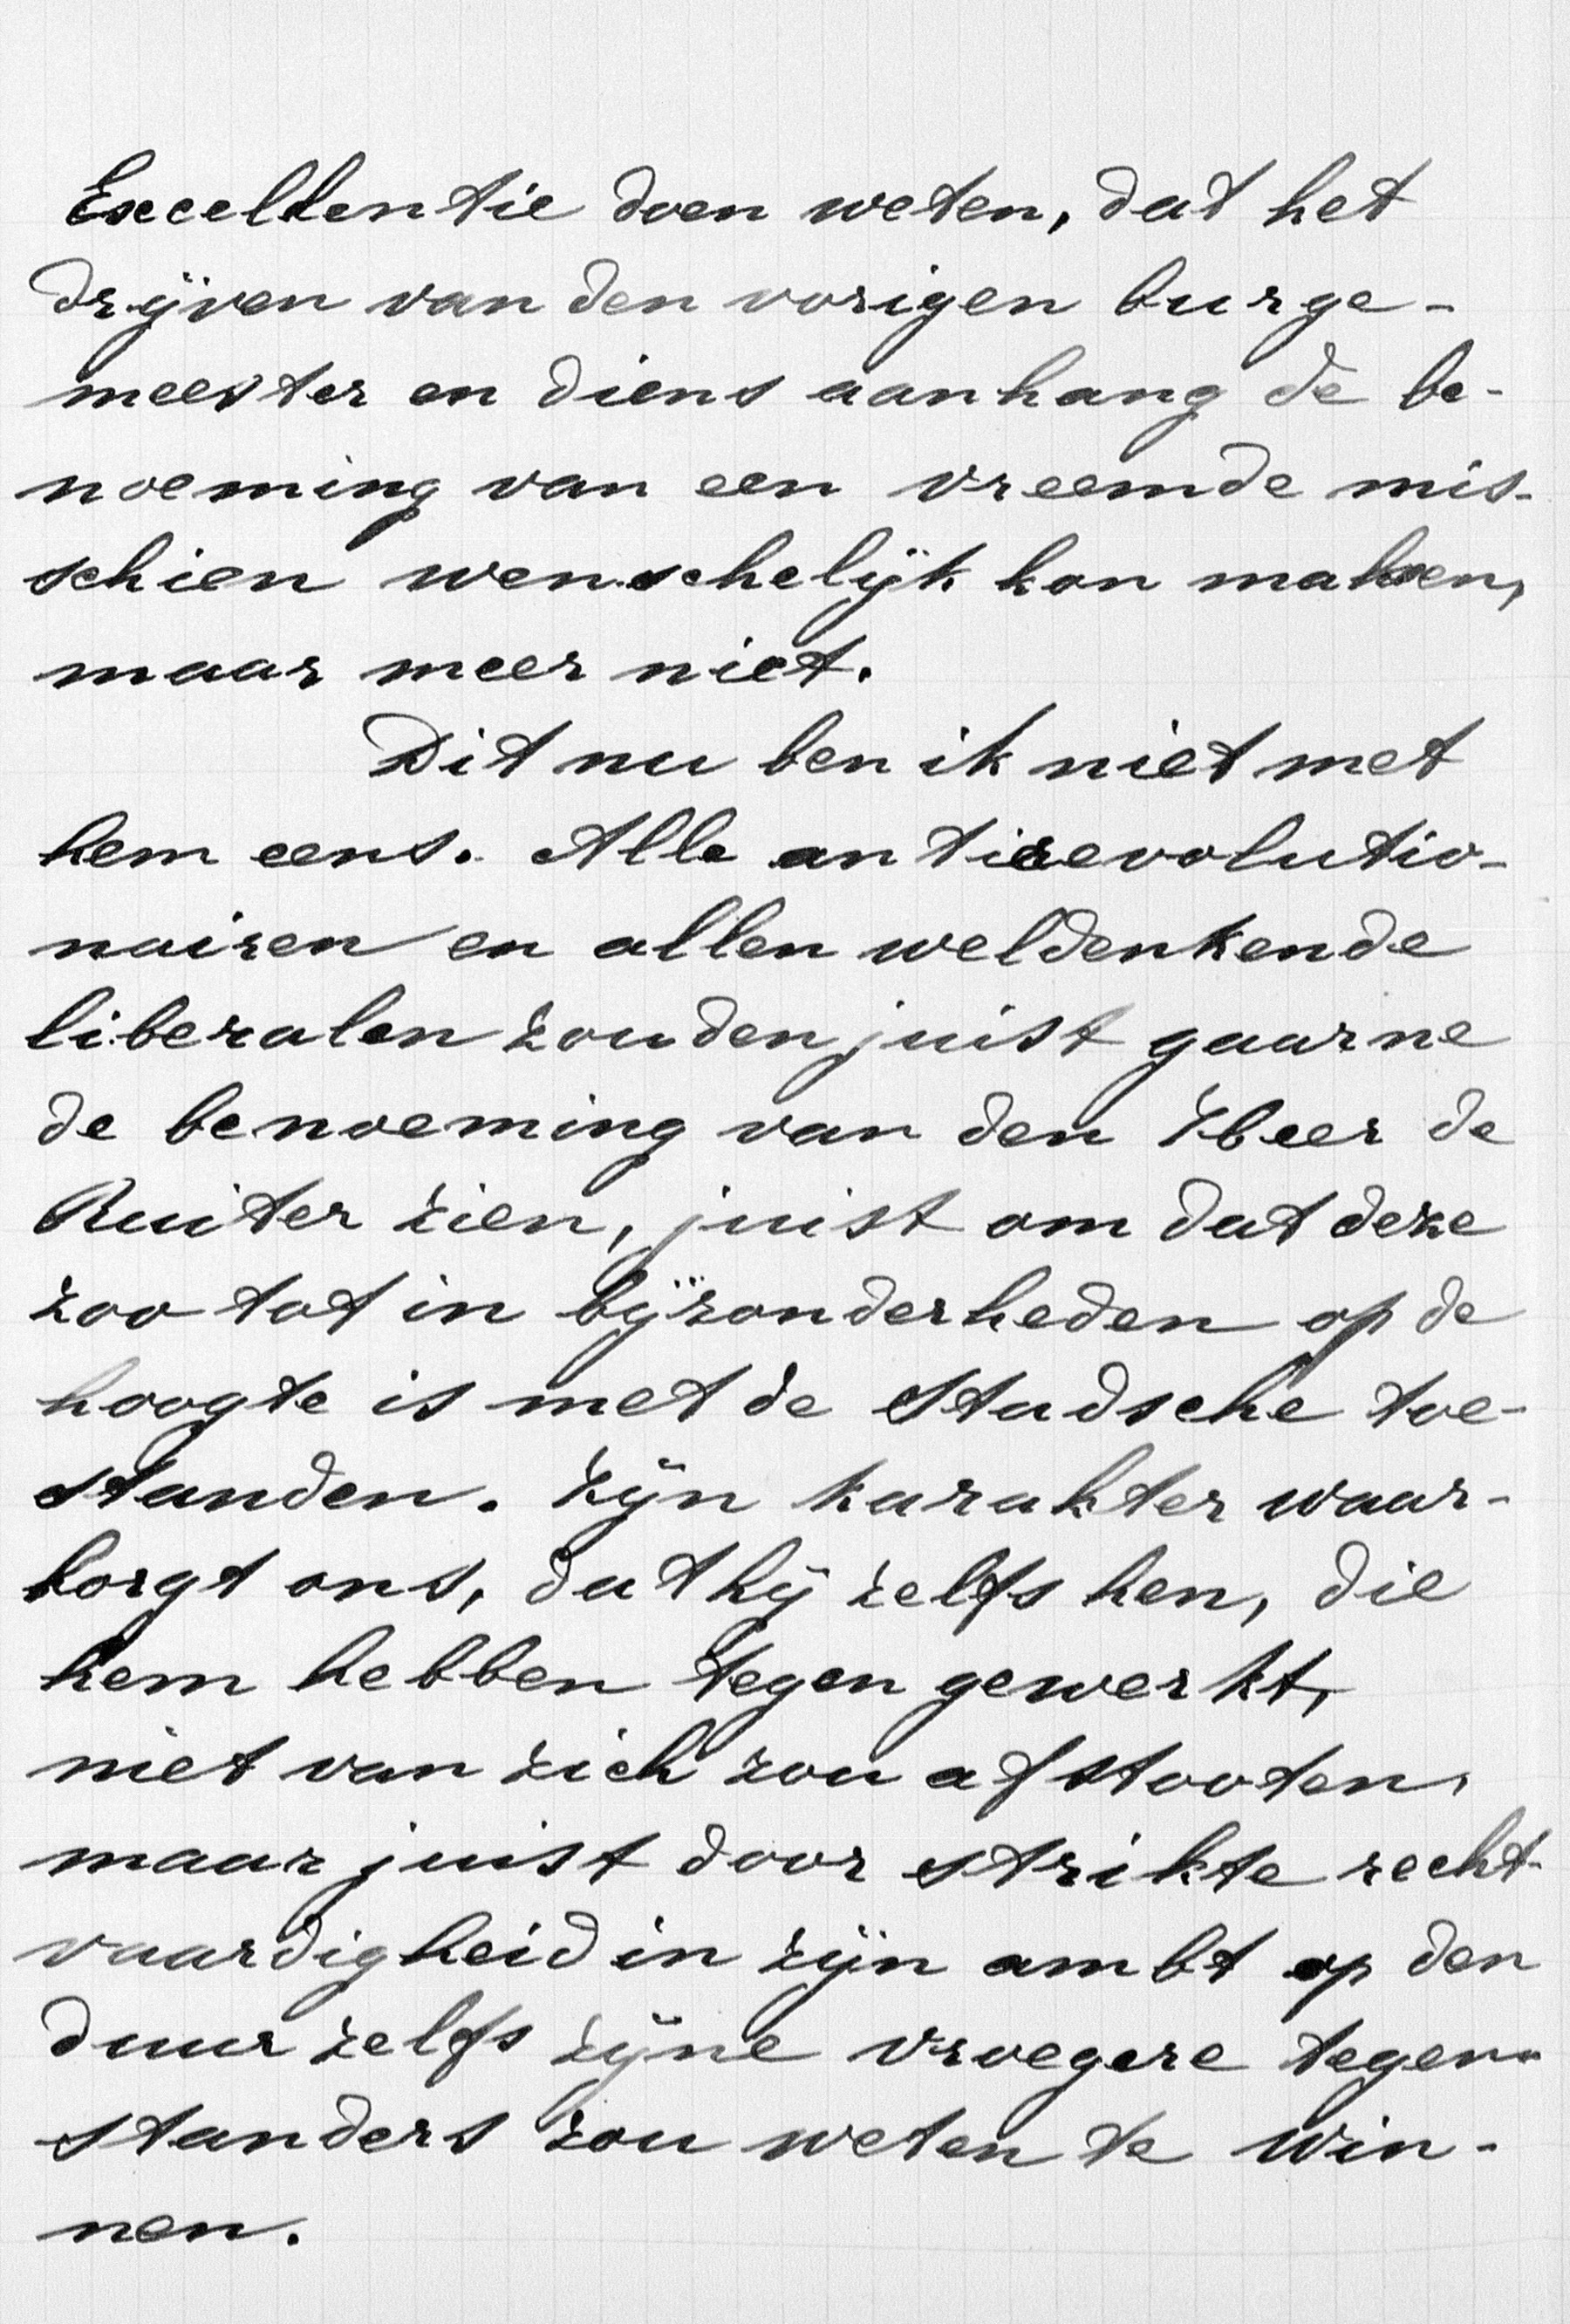 Excellentie doen weten, dat het
drijven van den vorigen burge-
meester en diens aanhang de be-
noeming van een vreemde mis-
schien wenschelijk kon maken,
maar meer niet.
Dit nu ben ik niet met
hem eens. Alle antirevolutio-
nairen en allen weldenkende
liberalen zouden juist gaarne
de benoeming van den Heer de
Ruiter zien, juist om dat deze
zoo tot in bijzonderheden op de
hoogte is met de stadsche toe-
standen. Zijn karakter waar-
borgt ons, dat hij zelfs hen, die
hem hebben tegen gewerkt,
niet van zich zou afstooten,
maar juist door strikte recht-
vaardigheid in zijn ambt op den
duur zelfs zijne vroegere tegen-
standers zou weten te win-
nen.